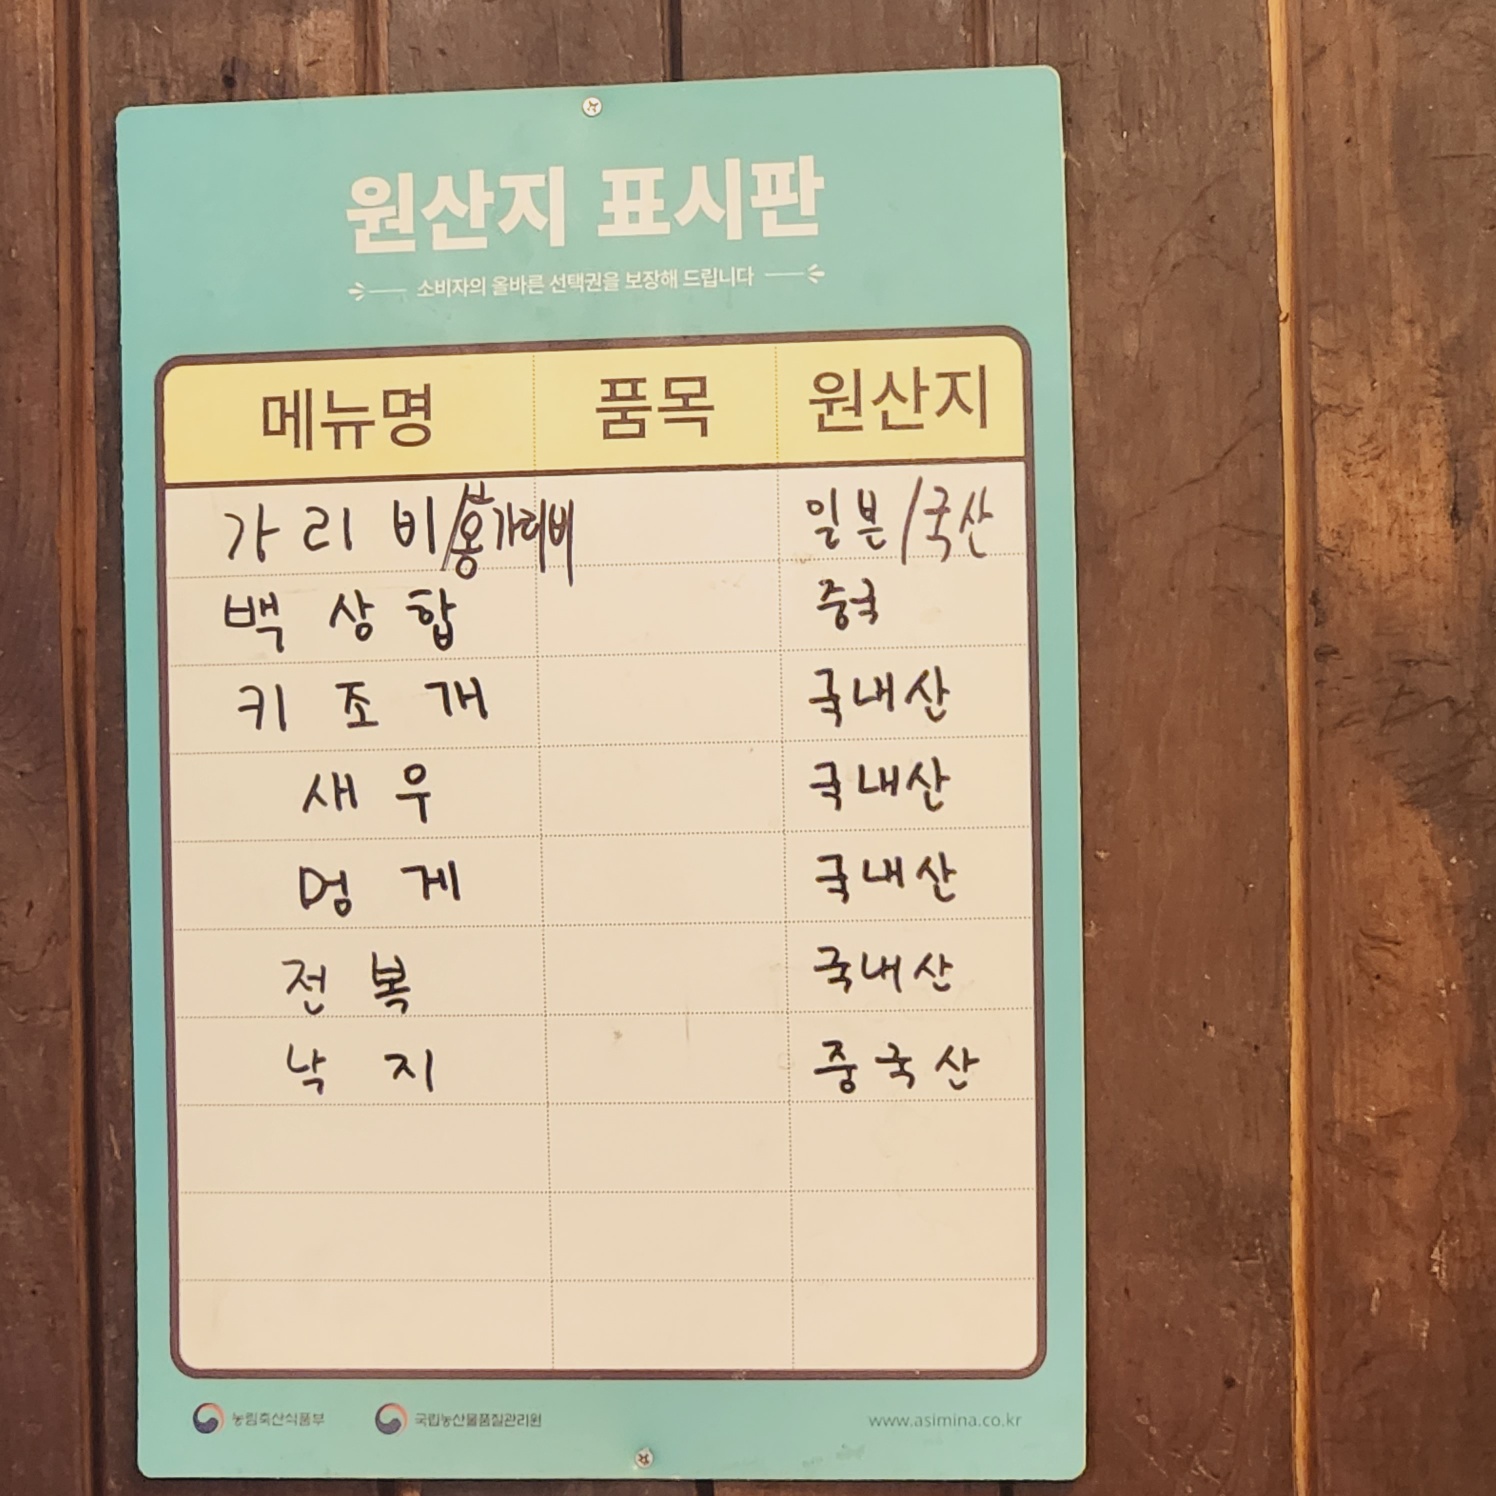 원산지 표시판
소비자의 올바른 선택권을 보장해 드립니다
메뉴명 품목 원산지
가리비/홍가리비 일본/국산
백상합 중국
키조개 국내산
새우 국내산
멍게 국내산
전복 국내산
낙지 중국산
농림축산식품부 국립농산물품질관리원 www.asimina.co.kr